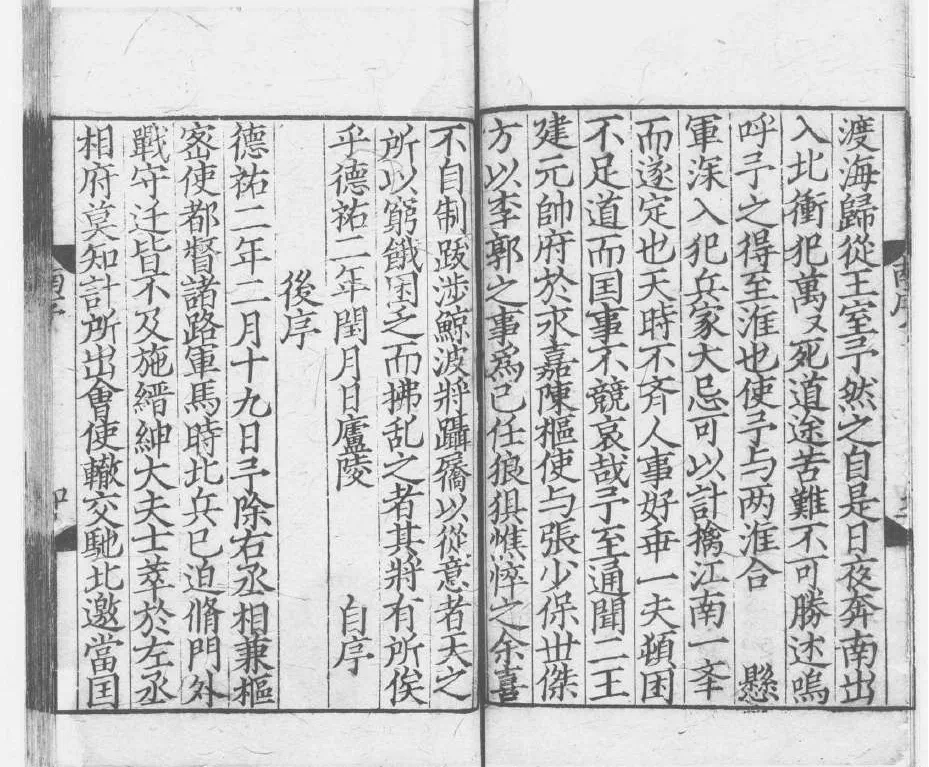 渡海歸從王室予然之自是日夜奔南出
入北衝犯萬々死道途苦難不可勝述嗚
呼予之得至淮也使予与两淮合　懸
軍深入犯兵家大忌可以計擒江南一举
而遂定也天時不斉人事好乖一夫頓困
不足道而囯事不競哀哉予至通聞二王
建元帥府於永嘉陳樞使与張少保世傑
方以李郭之事為己任狼狽憔悴之余喜
不自制跋涉鯨波将躡屩以從意者天之
所以窮餓困乏而拂乱之者其将有所俟
乎德祐二年閏月日廬陵　自序
後序
德祐二年二月十九日予除右丞相兼樞
宻使都督諸路軍馬時北兵已迫脩門外
戰守迁皆不及施縉紳大夫士萃於左丞
相府莫知計所出會使轍交馳北邀當囯